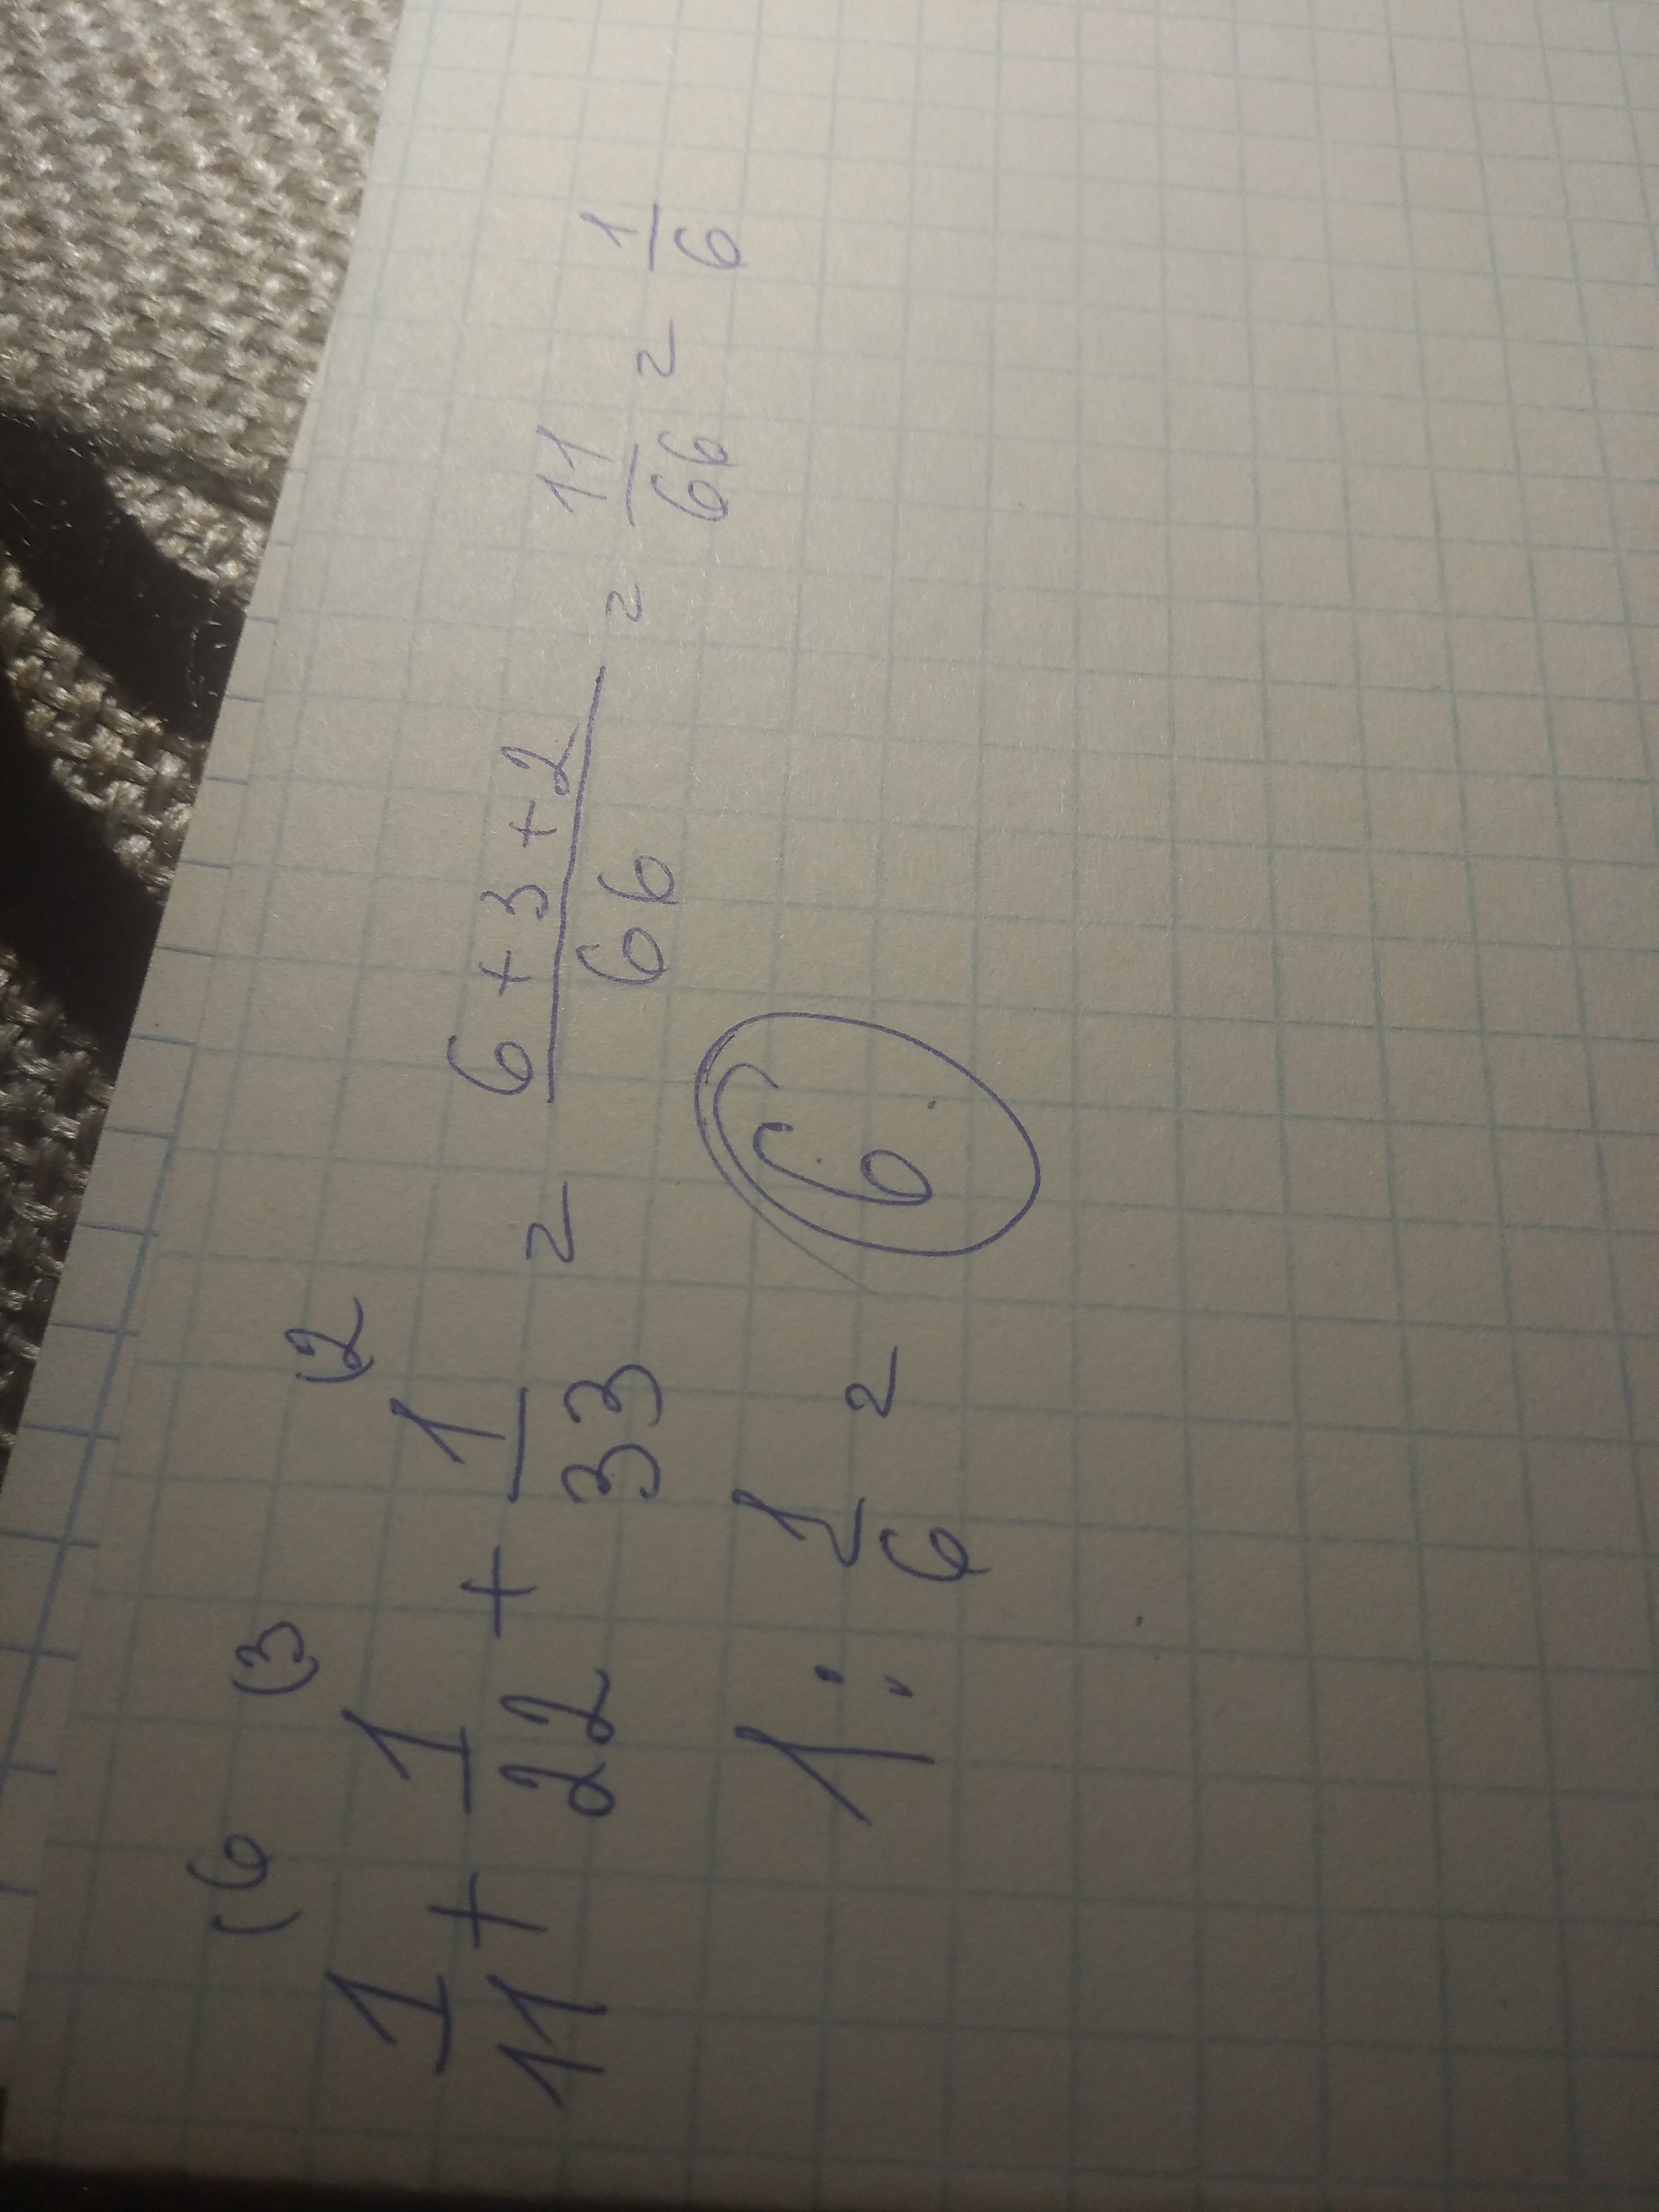 1/11 (6 + 1/22 (3 + 1/33 (2 = 6+3+2/66 = 11/66 = 1/6
1 : 1/6 = 6